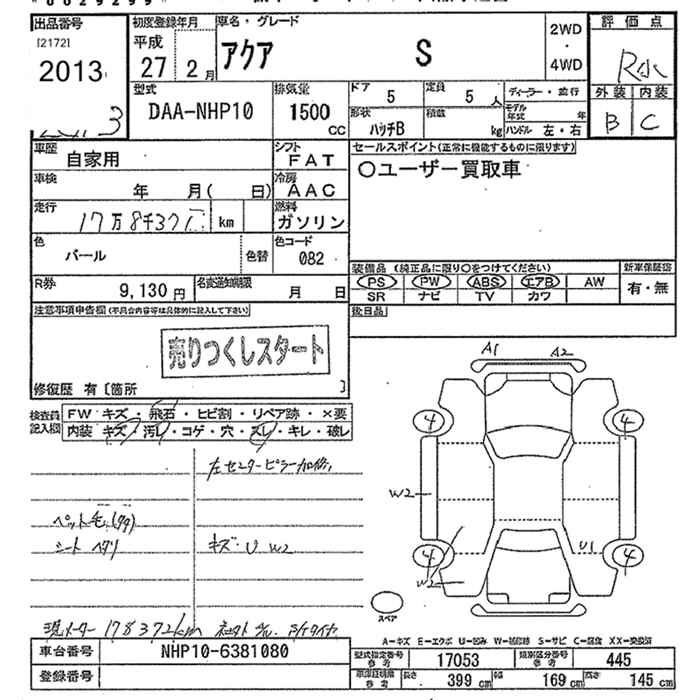 出品番号
[2172]
2013
初度登録年月
平成
27 2月
車名・グレード
アクア S
2WD
・
4WD
評価点
R
外装 内装
B C
型式
DAA-NHP10
排気量
1500
CC
ドア
5
定員
5 人
形状
ハッチB
積載
kg
ディーラー・並行
モデル年式 年
ハンドル 左・右
車歴
自家用
シフト
FAT
車検
年 月( 日)
冷房
AAC
走行
km
燃料
ガソリン
色
パール
色替
色コード
082
R券
9,130 円
名変通知期限
月 日
セールスポイント(正常に機能するものに限ります)
〇ユーザー買取車
装備品 (純正品に限り〇をつけてください)
新車保証書
PS PW ABS エアB AW
SR ナビ TV カワ
有・無
後日品
注意事項申告欄(不具合内容等は具体的に記入して下さい)
売りつくしスタート
修復歴 有〔箇所 〕
検査員記入欄
FW キズ・飛石・ヒビ割・リペア跡・×要
内装 キズ・汚レ・コゲ・穴・スレ・キレ・破レ
左センターピラー加修
ペット毛
シート ヘタリ
キズ・U W2
現メーター 178372km
A1 A2
4 4
W2
4 4
U1
W2
スペア
A-キズ E-エクボ U-凹み W-補修跡 S-サビ C-腐食 XX-交換済
車台番号
NHP10-6381080
登録番号
型式指定番号 参考
17053
類別区分番号 参考
445
車庫証明用 参考
長さ 399 cm
幅 169 cm
高さ 145 cm